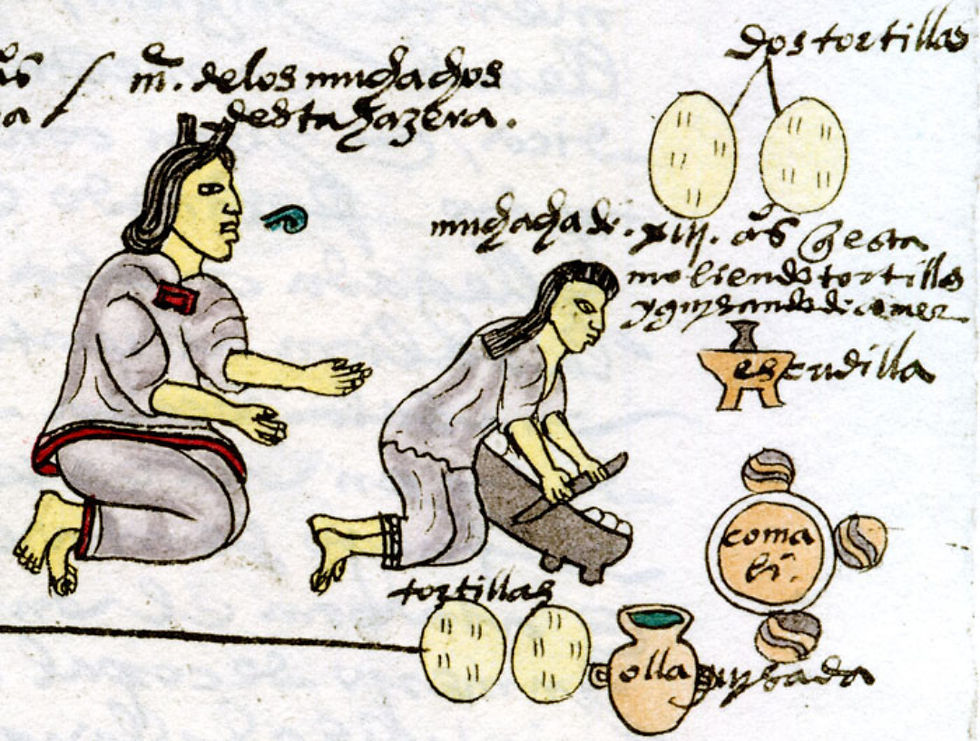 as / mͤ. de los muchachos
a desta hazera.
dos tortillas
muchacha de .xiij. as̊ q̃ esta
moliendo tortillas
y guysando de comer
escudilla
comali.
tortillas
olla guysada